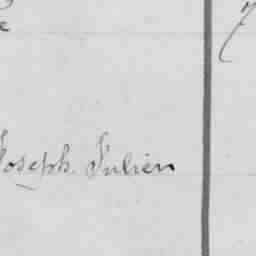 Joseph Julien